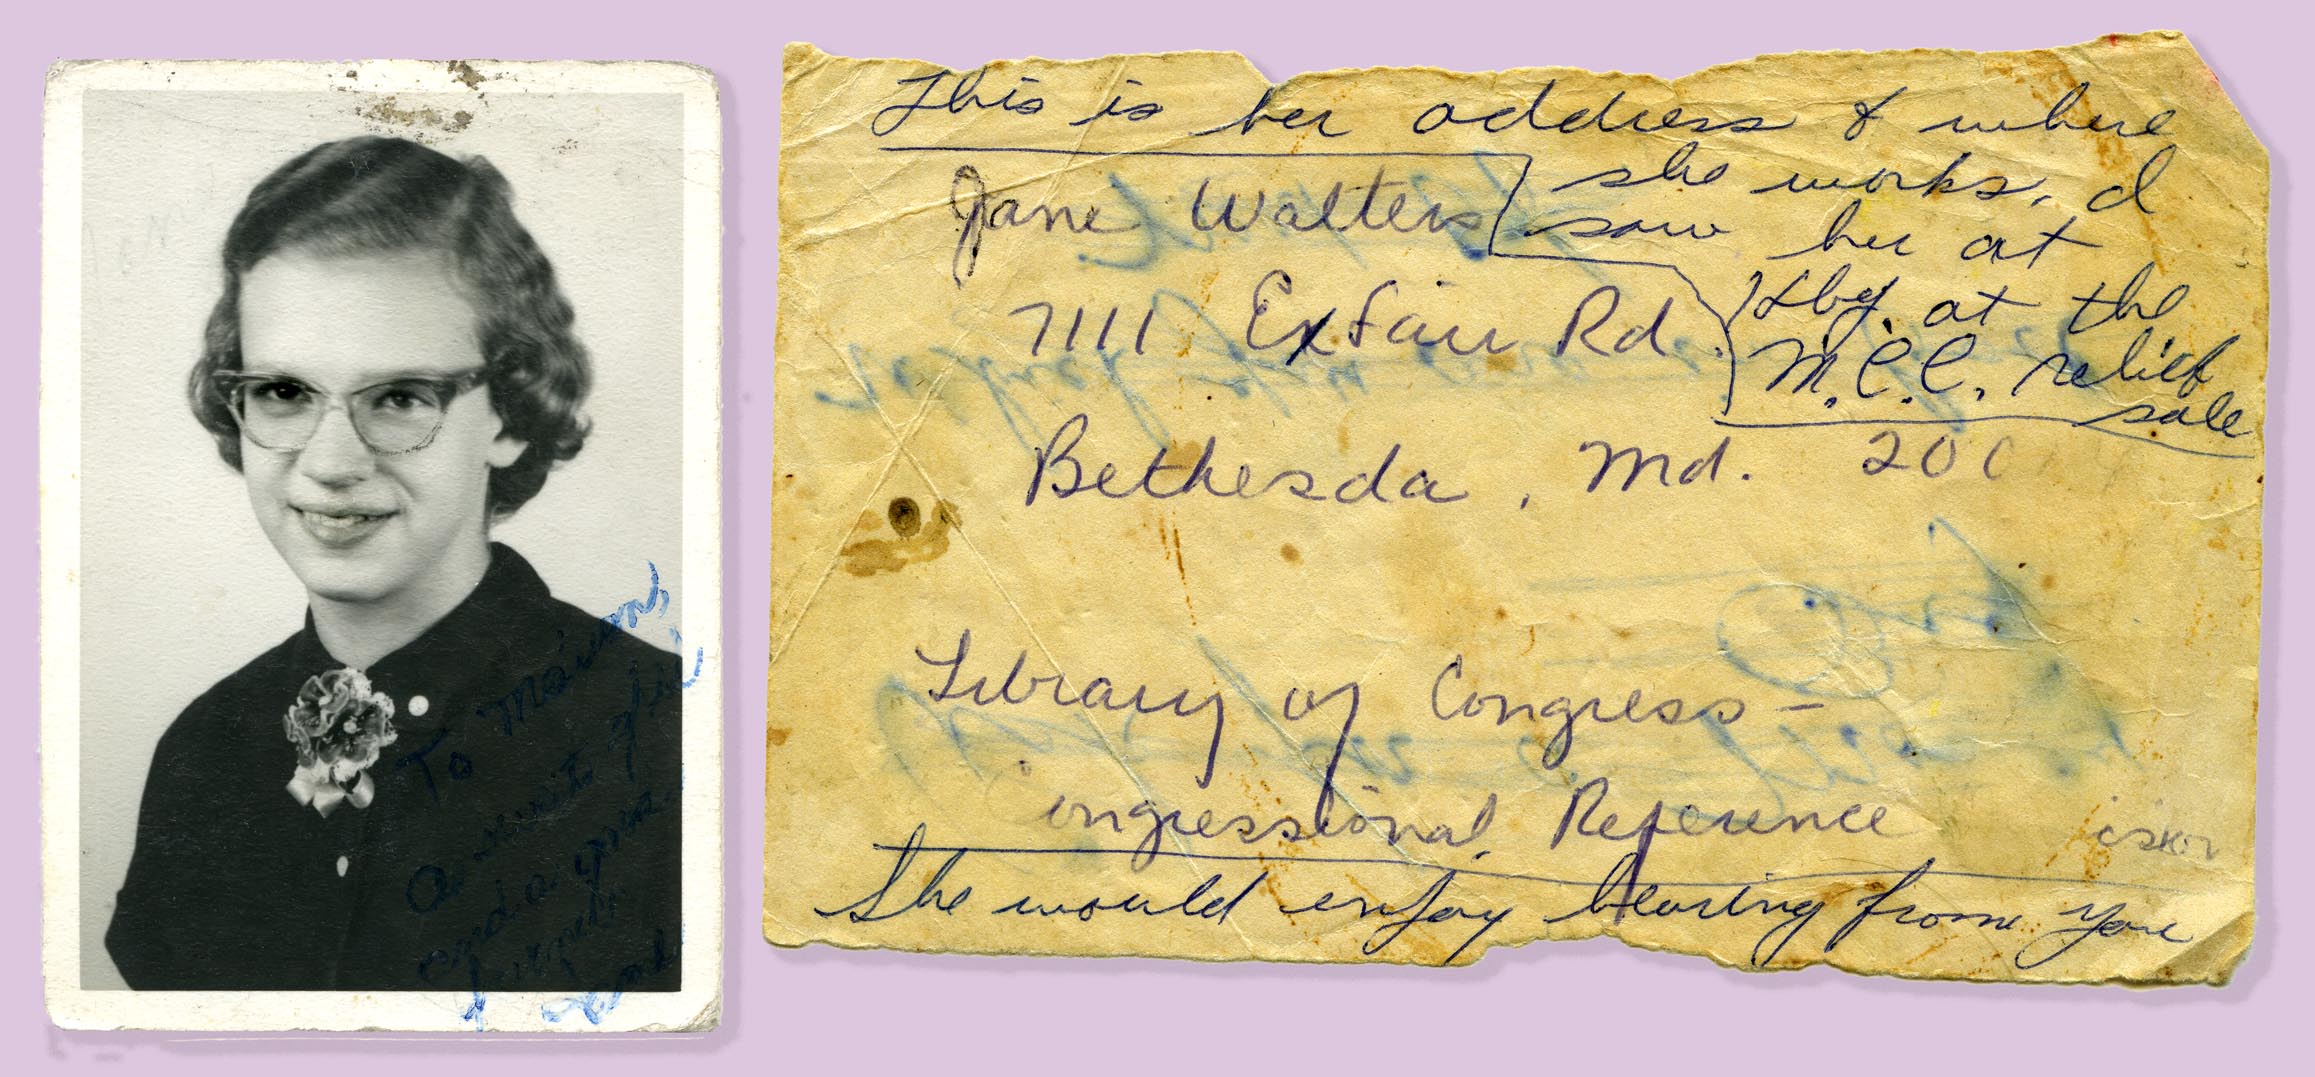 To Marian,
A sweet girl
and a good
friend.
This is her address & where
she works. I
saw her at
Kby. at the
M.C.C. relief
sale
Jane Walters
7111 Exfair Rd.
Bethesda, Md. 200
Library of Congress -
ongressional Reference
She would enjoy hearing from you